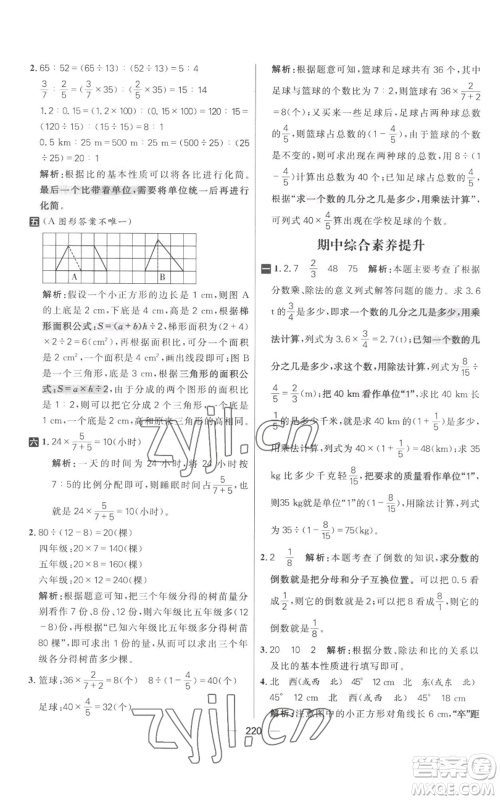 2. 65∶52=(65÷13)∶(52÷13)=5∶4
3/7∶2/5=(3/7×35)∶(2/5×35)=15∶14
1.2∶0.15=(1.2×100)∶(0.15×100)=120∶15=
(120÷15)∶(15÷15)=8∶1
0.5 km∶25 m=500 m∶25 m=(500÷25)∶(25
÷25)=20∶1
解析:根据比的基本性质可以对各比进行化简。
最后一个比带着单位,需要将单位统一后再进行
化简。
五 (A图形答案不唯一)
A
B
解析:假设一个小正方形的边长是1 cm,则图A
的上底是2 cm,下底是4 cm,高是2 cm,根据梯
形面积公式:S=(a+b)h÷2,可得面积为(2+4)
×2÷2=
是一个三角形,底是
式:S=ah÷2,
1∶2,可以把它分成2个三角形,
是2 cm,另一个是4 cm,高和原来三角形的高相同。
六 1. 24×5/(7+5)=10(小时)
解析:一天的时间为24小时,24小时被按7∶
5的比例分配即可,则睡眠时间占了5/(7+5),也
就是24×5/(7+5)=10(小时)
2. 80÷(12-8)=20(棵)
四年级:20×7=140(棵)
五年级:20×8=160(棵)
六年级:20×12=240(棵)
解析:根据题意可知,把三个年级分得的树苗数量
分别看作7份,8份,12份,六年级比五年级多
12-8=4(份),已知六年级比五年级多分得树苗
80棵,即可求出1份的数量,从而求出三个年
级各分得树苗多少棵。
3. 篮球:36×2/(7+2)=8(个)
足球:8÷(1-4/5)=40(个)
40×4/5=32(个)
解析:根据题意可知,篮球和足球共有36个,
篮球与足球的个数比为2∶7,则篮球有36×2/(7+2)
=8(个)。又买来一些足球,足球占两种球总数
的4/5,则篮球占总数的(1-4/5),篮球的个数没有
变,根据已知一个数的几分之几是多少,求这个
数用除法计算,可求出现在两种球的总数,用8÷(1
-4/5)计算出总数40个;求足球的个数,就是求
40个的4/5是多少,求一个数的几分之几是多少,
用乘法计算,可列式40×4/5=32(个)。
期中综合素养提升
一 1. 2.7 2/3 48 75 解析:本题主要考查了根据
分数乘、除法的意义列式解答问题的能力。求3.6
t的3/4是多少,求一个数的几分之几是多少,用乘
法计算,列式为3.6×3/4=2.7(t);已知一个数的几
分之几是多少,求这个数,用除法计算,列式为
÷
=2/3(m);把40 km看作单位“1”,求比
40 km多1/5是多少千米,就是求40 km的(1+1/5)
是多少,用乘法计算,列式为40×(1+1/5)=48(km);求35
kg比多少千克轻8/15,把所求的质量看作单位“1”,
35 kg相当于单位“1”的(1-8/15),用除法计算,列式
为35÷(1-8/15)=75(kg)。
2. 2 1/8 解析:本题考查了倒数的知识,求分数的
倒数就是把分子和分母互换位置,可以把0.5看
成1/2,
是2;8可以看成8/1,则8的倒数
是1/8。
3. 20 10 2 解析:根据分数、除法和比的关系
以及比的基本性质进行填写即可。
4. 北 西(或西 北) 45° 12 cm 北 东(或东
北) 45° 18 cm 南 西(或西 南) 45° 12 cm
解析:注意图中的小正方形对角线长6 cm,“卒”距
zyjl.cn
220
答案圈
MXQE.COM